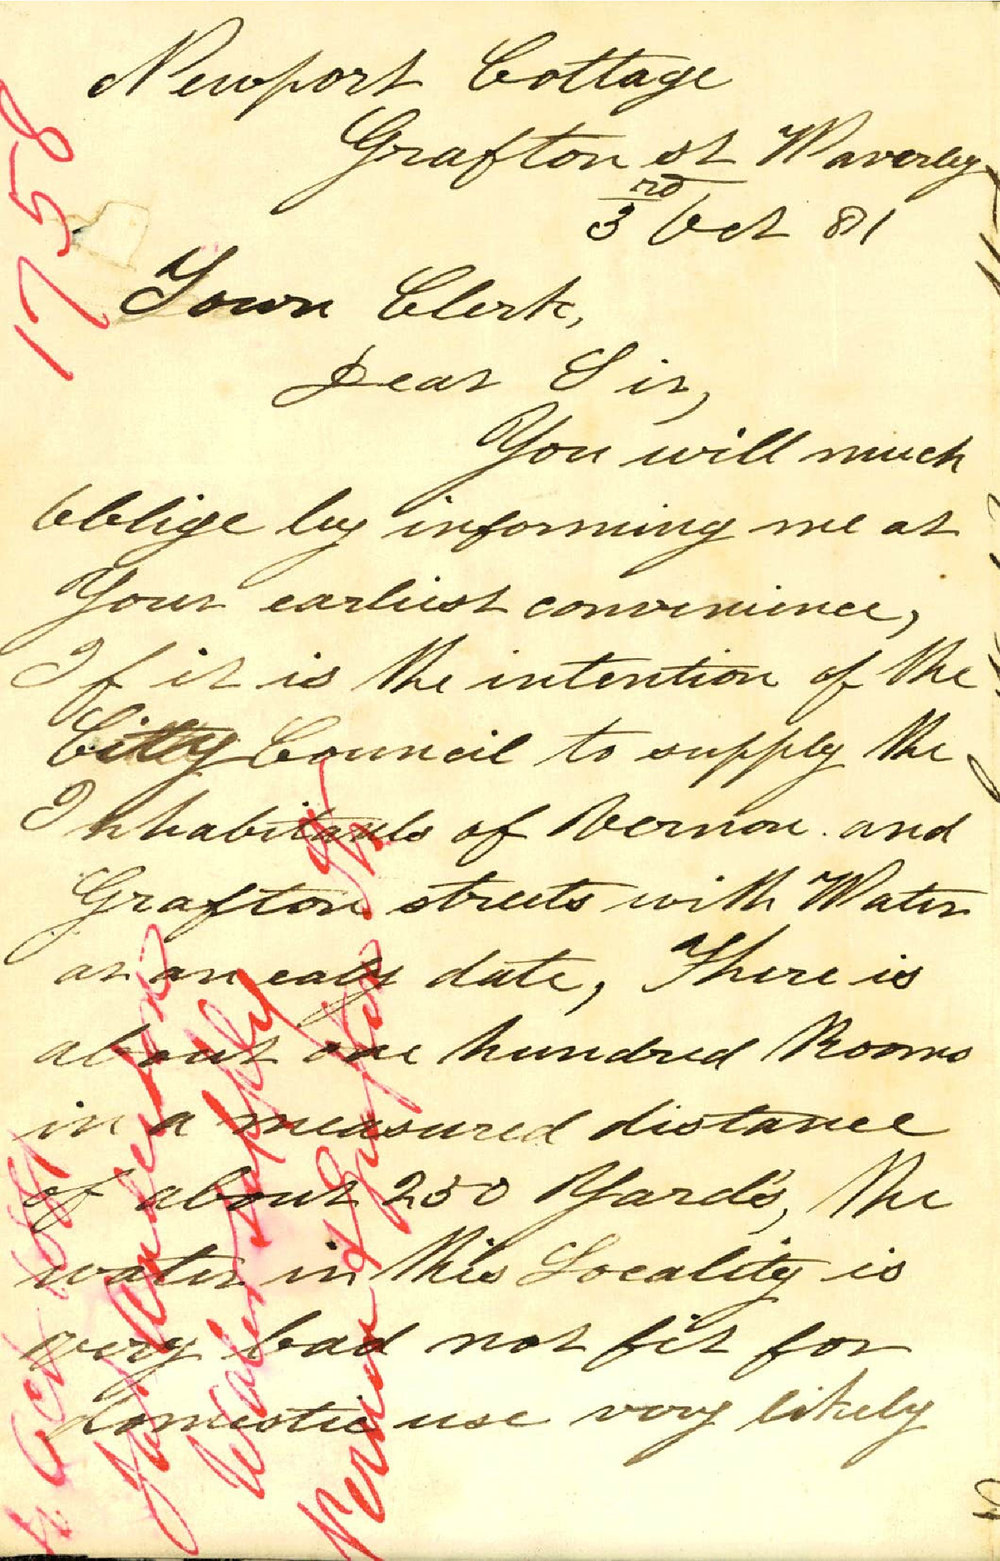 Newport Cottage
Grafton st Waverley
3rd Oct 81
Town Clerk,
Dear Sir,
You will much
Oblige by informing me at
Your earliest convenience,
If it is the intention of the
Citty Council to supply the
Inhabitants of Vernon and
Grafton streets with Water
at an ealy date, There is
about one hundred Rooms
in a measured distance
of about 250 Yards, the
water in this Locality is
very bad not fit for
domestic use very likely
1758
Oct 1881
Water supply
Vernon & Grafton St